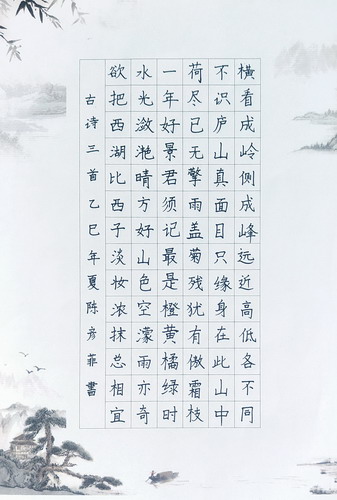 横看成岭侧成峰远近高低各不同
不识庐山真面目只缘身在此山中
荷尽已无擎雨盖菊残犹有傲霜枝
一年好景君须记最是橙黄橘绿时
水光潋滟晴方好山色空濛雨亦奇
欲把西湖比西子淡妆浓抹总相宜
古诗三首乙巳年夏陈彦菲書